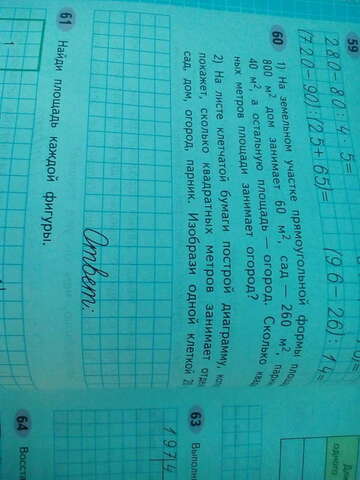 59
280-80:4·5=
(720-90):(25+65)=
(96-26):14=
60
1) На земельном участке прямоугольной формы
800 м², дом занимает 60 м², сад — 260 м²,
40 м², а остальную площадь — огород. Сколько
ных метров площади занимает огород?
2) На листе клетчатой бумаги построй диаграмму,
покажет, сколько квадратных метров занимает
сад, дом, огород, парник. Изобрази одной клеткой
Ответ:
61 Найди площадь каждой фигуры.
1
одного
63
1974
64